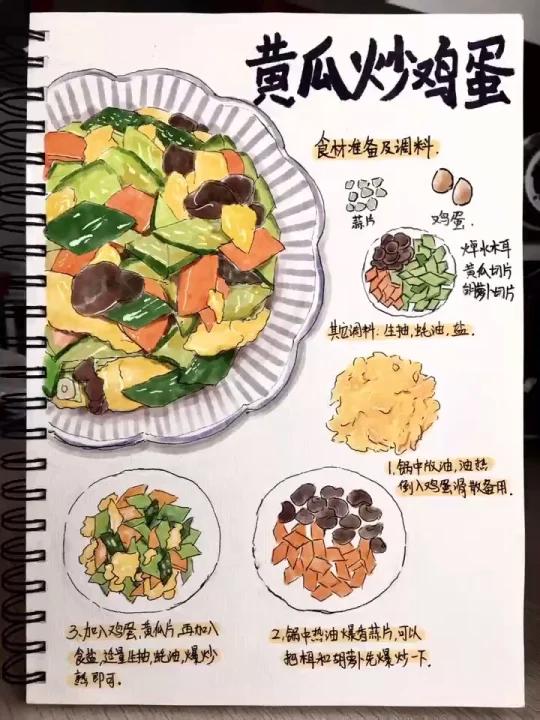 黄瓜炒鸡蛋
食材准备及调料.
蒜片
鸡蛋.
焯水木耳
黄瓜切片
胡萝卜切片
其它调料.生抽,蚝油,盐.
1.锅中放油,油热
倒入鸡蛋滑散备用.
2.锅中热油爆香蒜片,可以
把木耳和胡萝卜先爆炒一下.
3.加入鸡蛋,黄瓜片,再加入
食盐,适量生抽,蚝油,爆炒
熟即可.